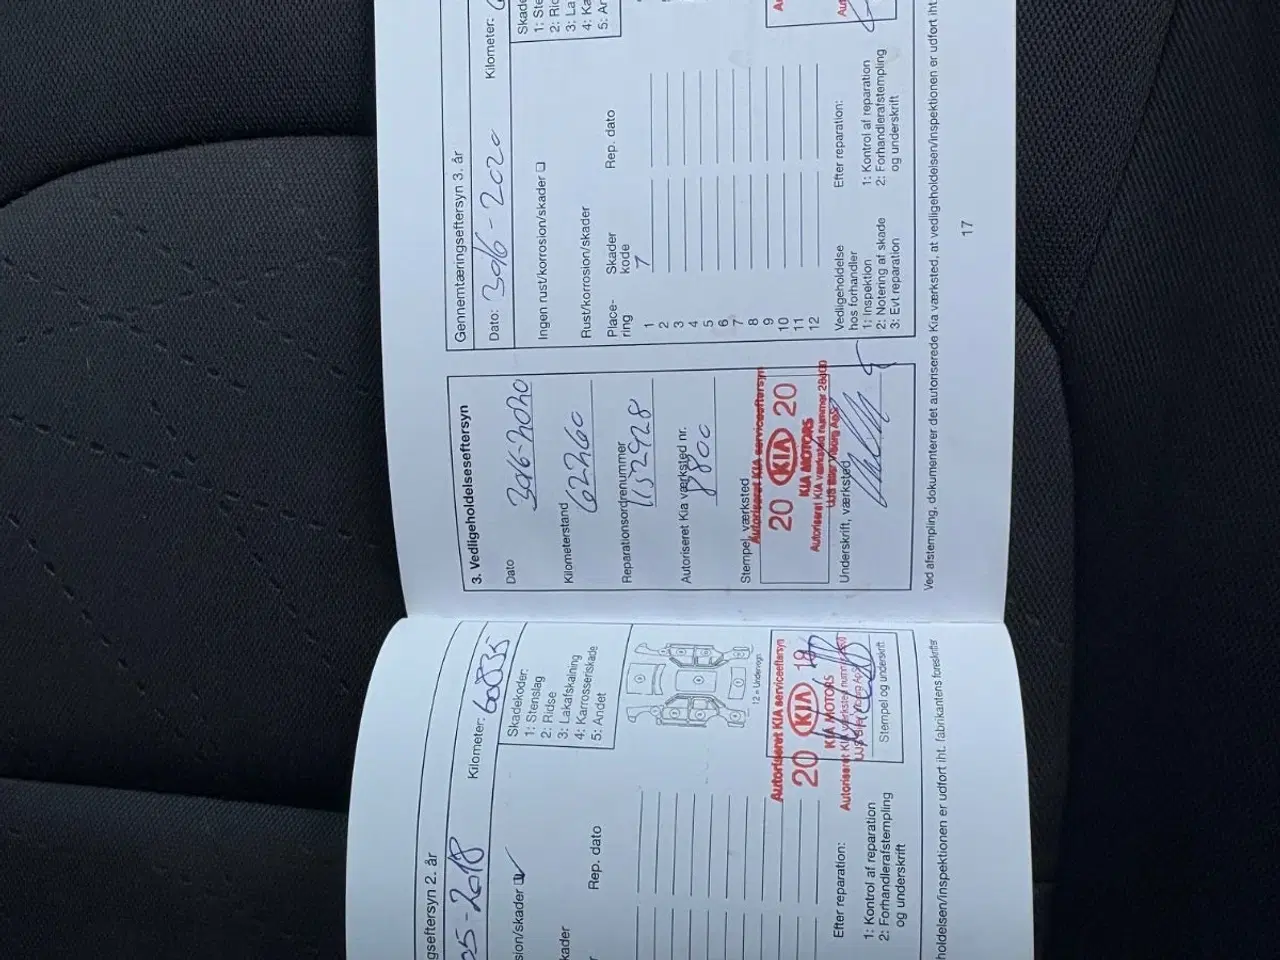 gseftersyn 2. år
05-2018
Kilometer: 60835
sion/skader
Skadekoder:
1: Stenslag
2: Ridse
3: Lakafskalning
4: Karrosseriskade
5: Andet
kader
Rep. dato
12 = Undervogn
Efter reparation:
1: Kontrol af reparation
2: Forhandlerafstempling
og underskrift
Autoriseret KIA serviceeftersyn
20 KIA 18
KIA MOTORS
Stempel og underskrift
holdelsen/inspektionen er udført iht. fabrikantens forskrifter
3. Vedligeholdelseseftersyn
Dato 30/6-2020
Kilometerstand
62260
Reparationsordrenummer
1152928
Autoriseret Kia værksted nr.
8800
Stempel, værksted
Autoriseret KIA serviceeftersyn
20 KIA 20
KIA MOTORS
Autoriseret KIA værksted nummer
Underskrift, værksted
Gennemtæringseftersyn 3. år
Dato: 30/6-2020
Kilometer:
Ingen rust/korrosion/skader
Skade
1: Ste
2: Rid
3: La
4: Ka
5: An
Rust/korrosion/skader
Place-
ring
Skader
kode
Rep. dato
1 7
2
3
4
5
6
7
8
9
10
11
12
Vedligeholdelse
hos forhandler
1: Inspektion
2: Notering af skade
3: Evt reparation
Efter reparation:
1: Kontrol af reparation
2: Forhandlerafstempling
og underskrift
Ved afstempling, dokumenterer det autoriserede Kia værksted, at vedligeholdelsen/inspektionen er udført iht
17